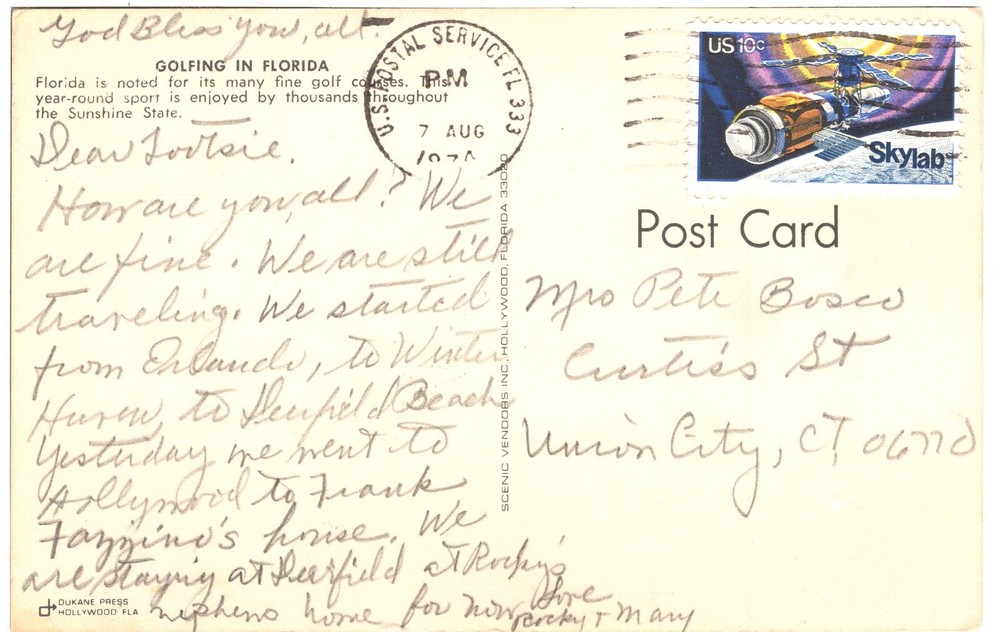 God Bless you, all.
GOLFING IN FLORIDA
Florida is noted for its many fine golf courses. This
year-round sport is enjoyed by thousands throughout
the Sunshine State.
Dear Tootsie.
How are you, all? We
are fine. We are still
traveling. We started
from Orlando, to Winter
Haven, to Deerfield Beach
Yesterday we went to
Hollywood to Frank
Fazzino's house. We
are staying at Deerfield at Rocky's
nephews home for now
Love
Rocky + Mary
DUKANE PRESS
HOLLYWOOD FLA
SCENIC VENDORS INC. HOLLYWOOD, FLORIDA 33020
U.S. POSTAL SERVICE FL 333
PM
7 AUG
US 10c
Skylab
Post Card
Mrs Pete Bosco
Curtiss St
Union City, CT 06770